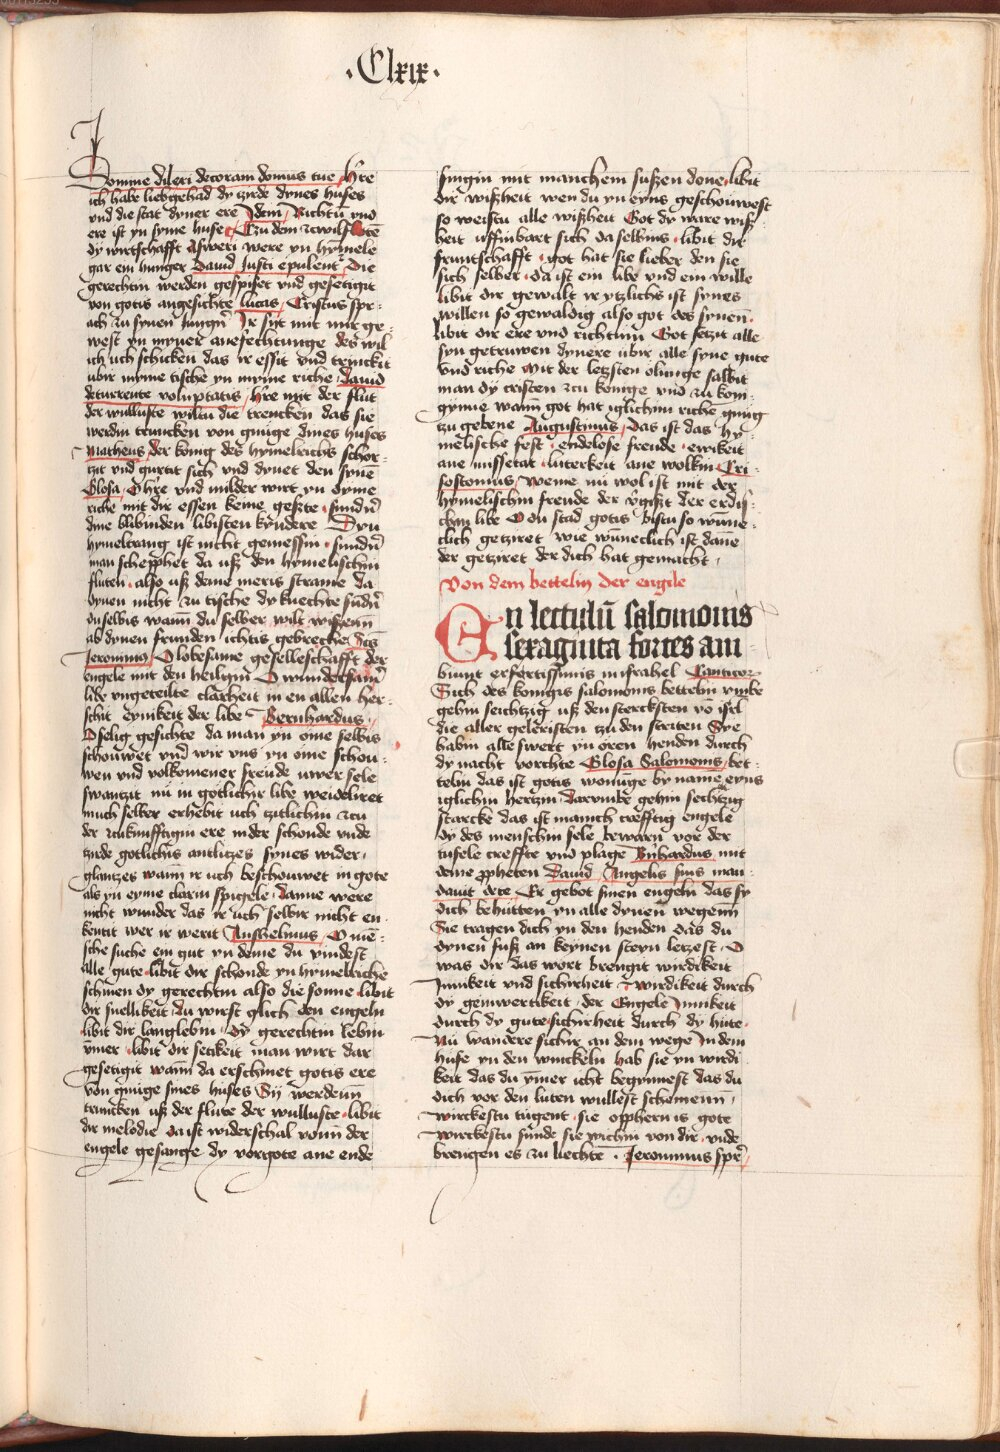 ·Clxix·
Domine dilexi decorem domus tue / h're
ich habe liebgehad dy zirde dynes huses
vnd die stat dyner ere Idem / Richtū vnd
ere ist yn syme huse Czu dem zcwilfftē
dy wirtschafft Asweri were yn hymele
gar ein hunger Dauid Iusti epulent' Die
gerechtin werden gespiset vnd gesetigit
von gotis angesichte lucas / Cristus spr-
ach zu synen Iungn' Ir syt mit mir ge-
west yn myner anefechtunge des wil
ich uch schicken das ir essit vnd trinckit
ubir myme tische yn myme riche / dauid
detorrente voluptatis / h're mit der flut
der wulluste wiltu die trencken das sie
werdin truncken von gnuge dines huses
Matheus / der konig des hymelrichs schor-
czit vnd gurtit sich vnd dynet den synē
Glosa / O h're vnd milder wirt yn dyme
riche mit dir essen keine geste sundn'
dine blibinden libisten kyndere Dyn
hymeltrang ist nicht gemessin sundn'
man schepphet da uß den hymelischin
fluten also uß deme meris strame da
dynen nicht zu tische dy knechte sūdn'
du selbis wann du selber wilt wissenn
ab dynen frunden ichtis gebreche Scs
Ieronimus / O lobesame geselleschafft der
engele mit den heiligin O wundersam'
libe vngeteilte clarheit in en allen her-
schit eynikeit der libe Bernhardus /
O selig gesichte da man yn eime selbis
schouwet vnd wir vns yn eime schou-
wen vnd volkomener freude uwer sele
swantzit nu in gotlichir libe weideliret
much selber erhebit uch zitlichin zcu
der zcukunfftigin ere in der schonde vnde
zirde gotlichis antlitzes synes wider-
glantzes wann ir uch beschouwet in gote
als yn eyme clarin spigele danne were
nicht wunder das ir uch selbir nicht en-
kentit wer ir werit Anshelmus / O mē-
sche suche ein gut yn deme du vindest
alle gute libit dir schonde yn hymelriche
schinen dy gerechtin also die sonne libit
dir snellikeit du wirst glich den engeln
libit dir langlebin dy gerechtin lebin
ymer libit dir setikeit man wirt dar
gesetigit wann da erschinet gotis ere
von gnuge sines huses Sy werdenn
truncken uß der flute der wulluste libit
dir melodie da ist widerschal vonn der
engele gesange dy vorgote ane ende
singin mit manchem sußen done libit
dir wißheit wen du yn eyns geschouwest
so weistu alle wißheit Got dy ware wiß-
heit uffinbart sich da selbins libit dir
fruntschafft got hat sie lieber den sie
sich selber da ist ein libe vnd ein wille
libit dir gewalt ir ytzlichs ist synes
willen so gewaldig also got des synen
libit dir ere vnd richtum Got setzit alle
syn getruwen dynere ubir alle syne gute
vnd riche Mit der letsten olunge salbit
man dy cristen zcu konige vnd zu kon-
gynne wann got hat iglichim riche gnug
zu gebene Augustinus / Das ist das hy-
melische fest endelose freude ewikeit
ane missetat luterkeit ane wolkin Cri-
sostomus / Weme nu wol ist mit der
hymelischin freude der v'gißt der erdis-
chin libe O du stad gotis bistu so wūne-
clich getziret wie wuneclich ist dane
der getziret der dich hat gemacht /
Von dem bettelin der engile
En lectulū salomonis
sexaginta fortes am-
biunt exfortissimis in israhel Canticor'
Sich des konigis salomonis bettelin vmbe
gehin sechtzig uß den stercksten vō isrl'
die aller gelertsten zu den striten Sye
habin alle swert yn oren henden durch
dy nacht vorchte Glosa Salomonis / bet-
telin das ist gotis wonunge by name eyns
iglichin hertzin darumbe gehin sechtzig
starcke das ist manich crefftig engele
dy des menschin sele bewarn vor der
tufele creffte vnd plage B'nhardus mit
deme propheten Dauid / Angelis suis man-
dauit dete Er gebot sinen engeln das sy
dich behutten yn alle dynen wegenn
Sie tragen dich yn den henden das du
dynen fuß an keynen steyn letzest O
was dir das wort brengit wirdikeit
Innikeit vnd sichirheit Wirdikeit durch
dy geinwertikeit der Engele Innikeit
durch dy gute sichirheit durch dy hute
Nu wandere sichir an dem wege In dem
huse yn den winckeln hab sie yn wirdi-
keit das du ymer icht begynnest das du
dich vor den luten wullest schemenn /
wirckestu tugent sie opphern is gote
wirckestu sunde sie wichin von dir vnde
brengen es zu liechte Ieronimus spr'